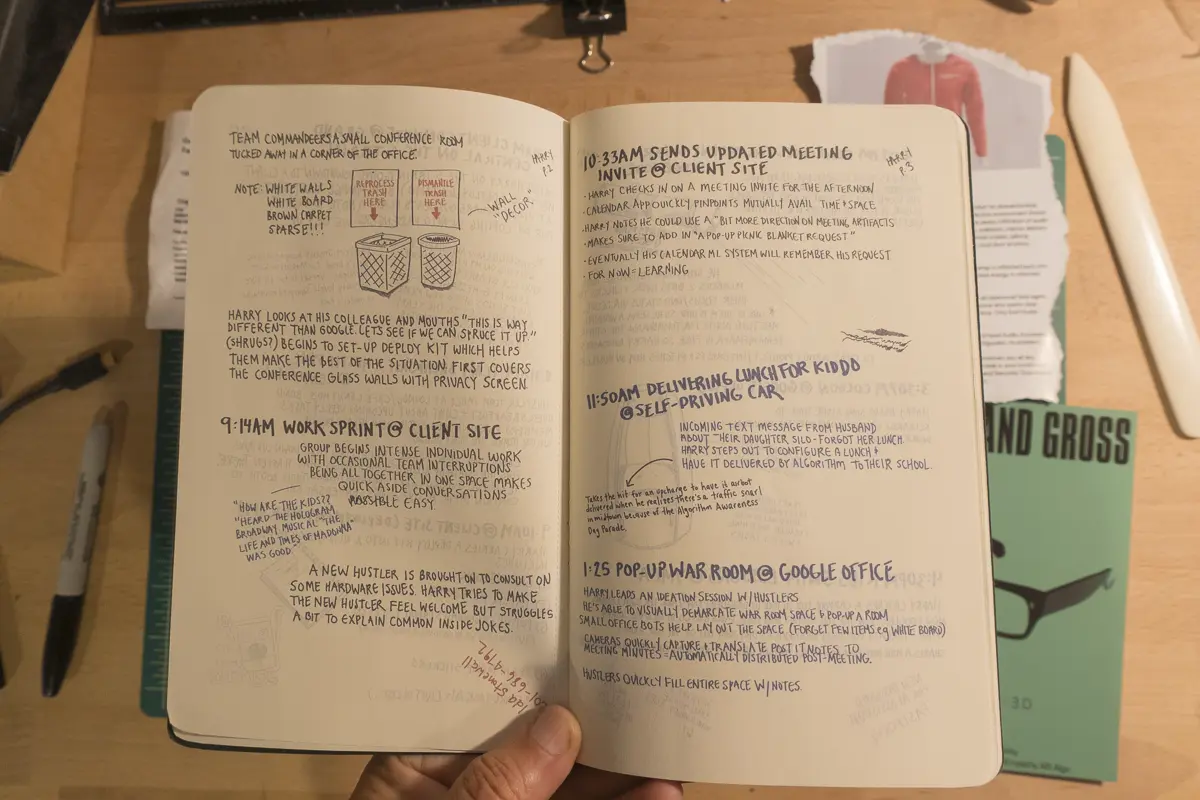 TEAM COMMANDEERS A SMALL CONFERENCE ROOM
TUCKED AWAY IN A CORNER OF THE OFFICE.
HARRY
P.2
NOTE: WHITE WALLS
WHITE BOARD
BROWN CARPET
SPARSE!!!
REPROCESS
TRASH
HERE
DISMANTLE
TRASH
HERE
WALL
"DECOR"
HARRY LOOKS AT HIS COLLEAGUE AND MOUTHS "THIS IS WAY
DIFFERENT THAN GOOGLE. LETS SEE IF WE CAN SPRUCE IT UP."
(SHRUGS?) BEGINS TO SET-UP DEPLOY KIT WHICH HELPS
THEM MAKE THE BEST OF THE SITUATION. FIRST COVERS
THE CONFERENCE GLASS WALLS WITH PRIVACY SCREEN.
9:14AM WORK SPRINT @ CLIENT SITE
GROUP BEGINS INTENSE INDIVIDUAL WORK
WITH OCCASIONAL TEAM INTERRUPTIONS
BEING ALL TOGETHER IN ONE SPACE MAKES
QUICK ASIDE CONVERSATIONS
POSSIBLE EASY.
"HOW ARE THE KIDS??
"HEARD THE HOLOGRAM
BROADWAY MUSICAL "THE
LIFE AND TIMES OF MADONA
WAS GOOD."
A NEW HUSTLER IS BROUGHT ON TO CONSULT ON
SOME HARDWARE ISSUES. HARRY TRIES TO MAKE
THE NEW HUSTLER FEEL WELCOME BUT STRUGGLES
A BIT TO EXPLAIN COMMON INSIDE JOKES.
Ida Stonewell
601-686-9792
10:33AM SENDS UPDATED MEETING
INVITE @ CLIENT SITE
HARRY
P.3
· HARRY CHECKS IN ON A MEETING INVITE FOR THE AFTERNOON
· CALENDAR APP QUICKLY PINPOINTS MUTUALLY AVAIL TIME & SPACE
· HARRY NOTES HE COULD USE A "BIT MORE DIRECTION ON MEETING ARTIFACTS
· MAKES SURE TO ADD IN "A POP-UP PICNIC BLANKET REQUEST"
· EVENTUALLY HIS CALENDAR ML SYSTEM WILL REMEMBER HIS REQUEST
· FOR NOW = LEARNING
11:50AM DELIVERING LUNCH FOR KIDDO
@ SELF-DRIVING CAR
INCOMING TEXT MESSAGE FROM HUSBAND
ABOUT THEIR DAUGHTER SILO - FORGOT HER LUNCH.
HARRY STEPS OUT TO CONFIGURE A LUNCH &
HAVE IT DELIVERED BY ALGORITHM TO THEIR SCHOOL.
Takes the hit for an upcharge to have it airbot
delivered when he realizes there's a traffic snarl
in midtown because of the Algorithm Awareness
Day Parade.
1:25 POP-UP WAR ROOM @ GOOGLE OFFICE
HARRY LEADS AN IDEATION SESSION W/ HUSTLERS
HE'S ABLE TO VISUALLY DEMARCATE WAR ROOM SPACE & POP-UP A ROOM
SMALL OFFICE BOTS HELP LAY OUT THE SPACE (FORGET FEW ITEMS eg WHITE BOARD)
CAMERAS QUICKLY CAPTURE & TRANSLATE POST IT NOTES TO
MEETING MINUTES = AUTOMATICALLY DISTRIBUTED POST-MEETING.
HUSTLERS QUICKLY FILL ENTIRE SPACE W/ NOTES.
AND GROSS
3D